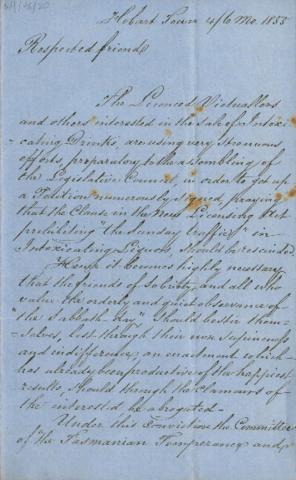 Hobart Town 4/6 Mo. 1855
Respected friend
The Licenced Victuallers
and others interested in the sale of Intoxi-
-cating Drinks, are using very strenuous
efforts, preparatory to the assembling of
the Legislative Council, in order to get up
a Petition numerously signed, praying
that the Clause in the New Licensing Act
prohibiting "the Sunday traffic" in
Intoxicating Liquors, should be rescinded.
Hence it becomes highly necessary
that the friends of Sobriety, and all who
value the orderly and quiet observance of
"the Sabbath day" should bestir them-
-selves, lest through their own supineness
and indifference, an enactment which
has already been productive of the happiest
results, should through the clamours of
the interested be abrogated.-
Under this Conviction the Committee
of the Tasmanian Temperance and